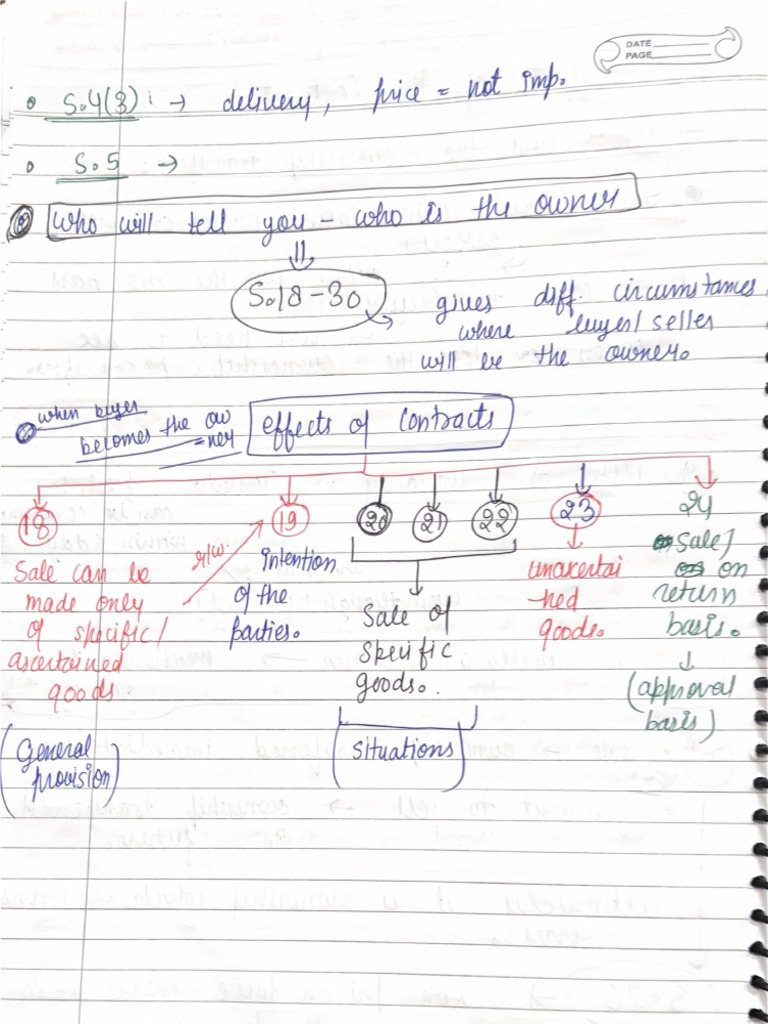 DATE
PAGE
• S.4(3): → delivery, price = not imp.
• S.5 →
Who will tell you - who is the owner
⇓
S.18-30
gives diff. circumstances
where buyer/seller
will be the owner.
when buyer
becomes the ow
=ner
effects of Contracts
18 19 20 21 22 23 24
Sale can be
made only
of specific/
ascertained
goods
r/w.
intention
of the
parties.
Sale of
specific
goods.
unascertai
-ned
goods.
Sale
on
return
basis.
↓
(approval
basis)
(General
provision)
(situations)